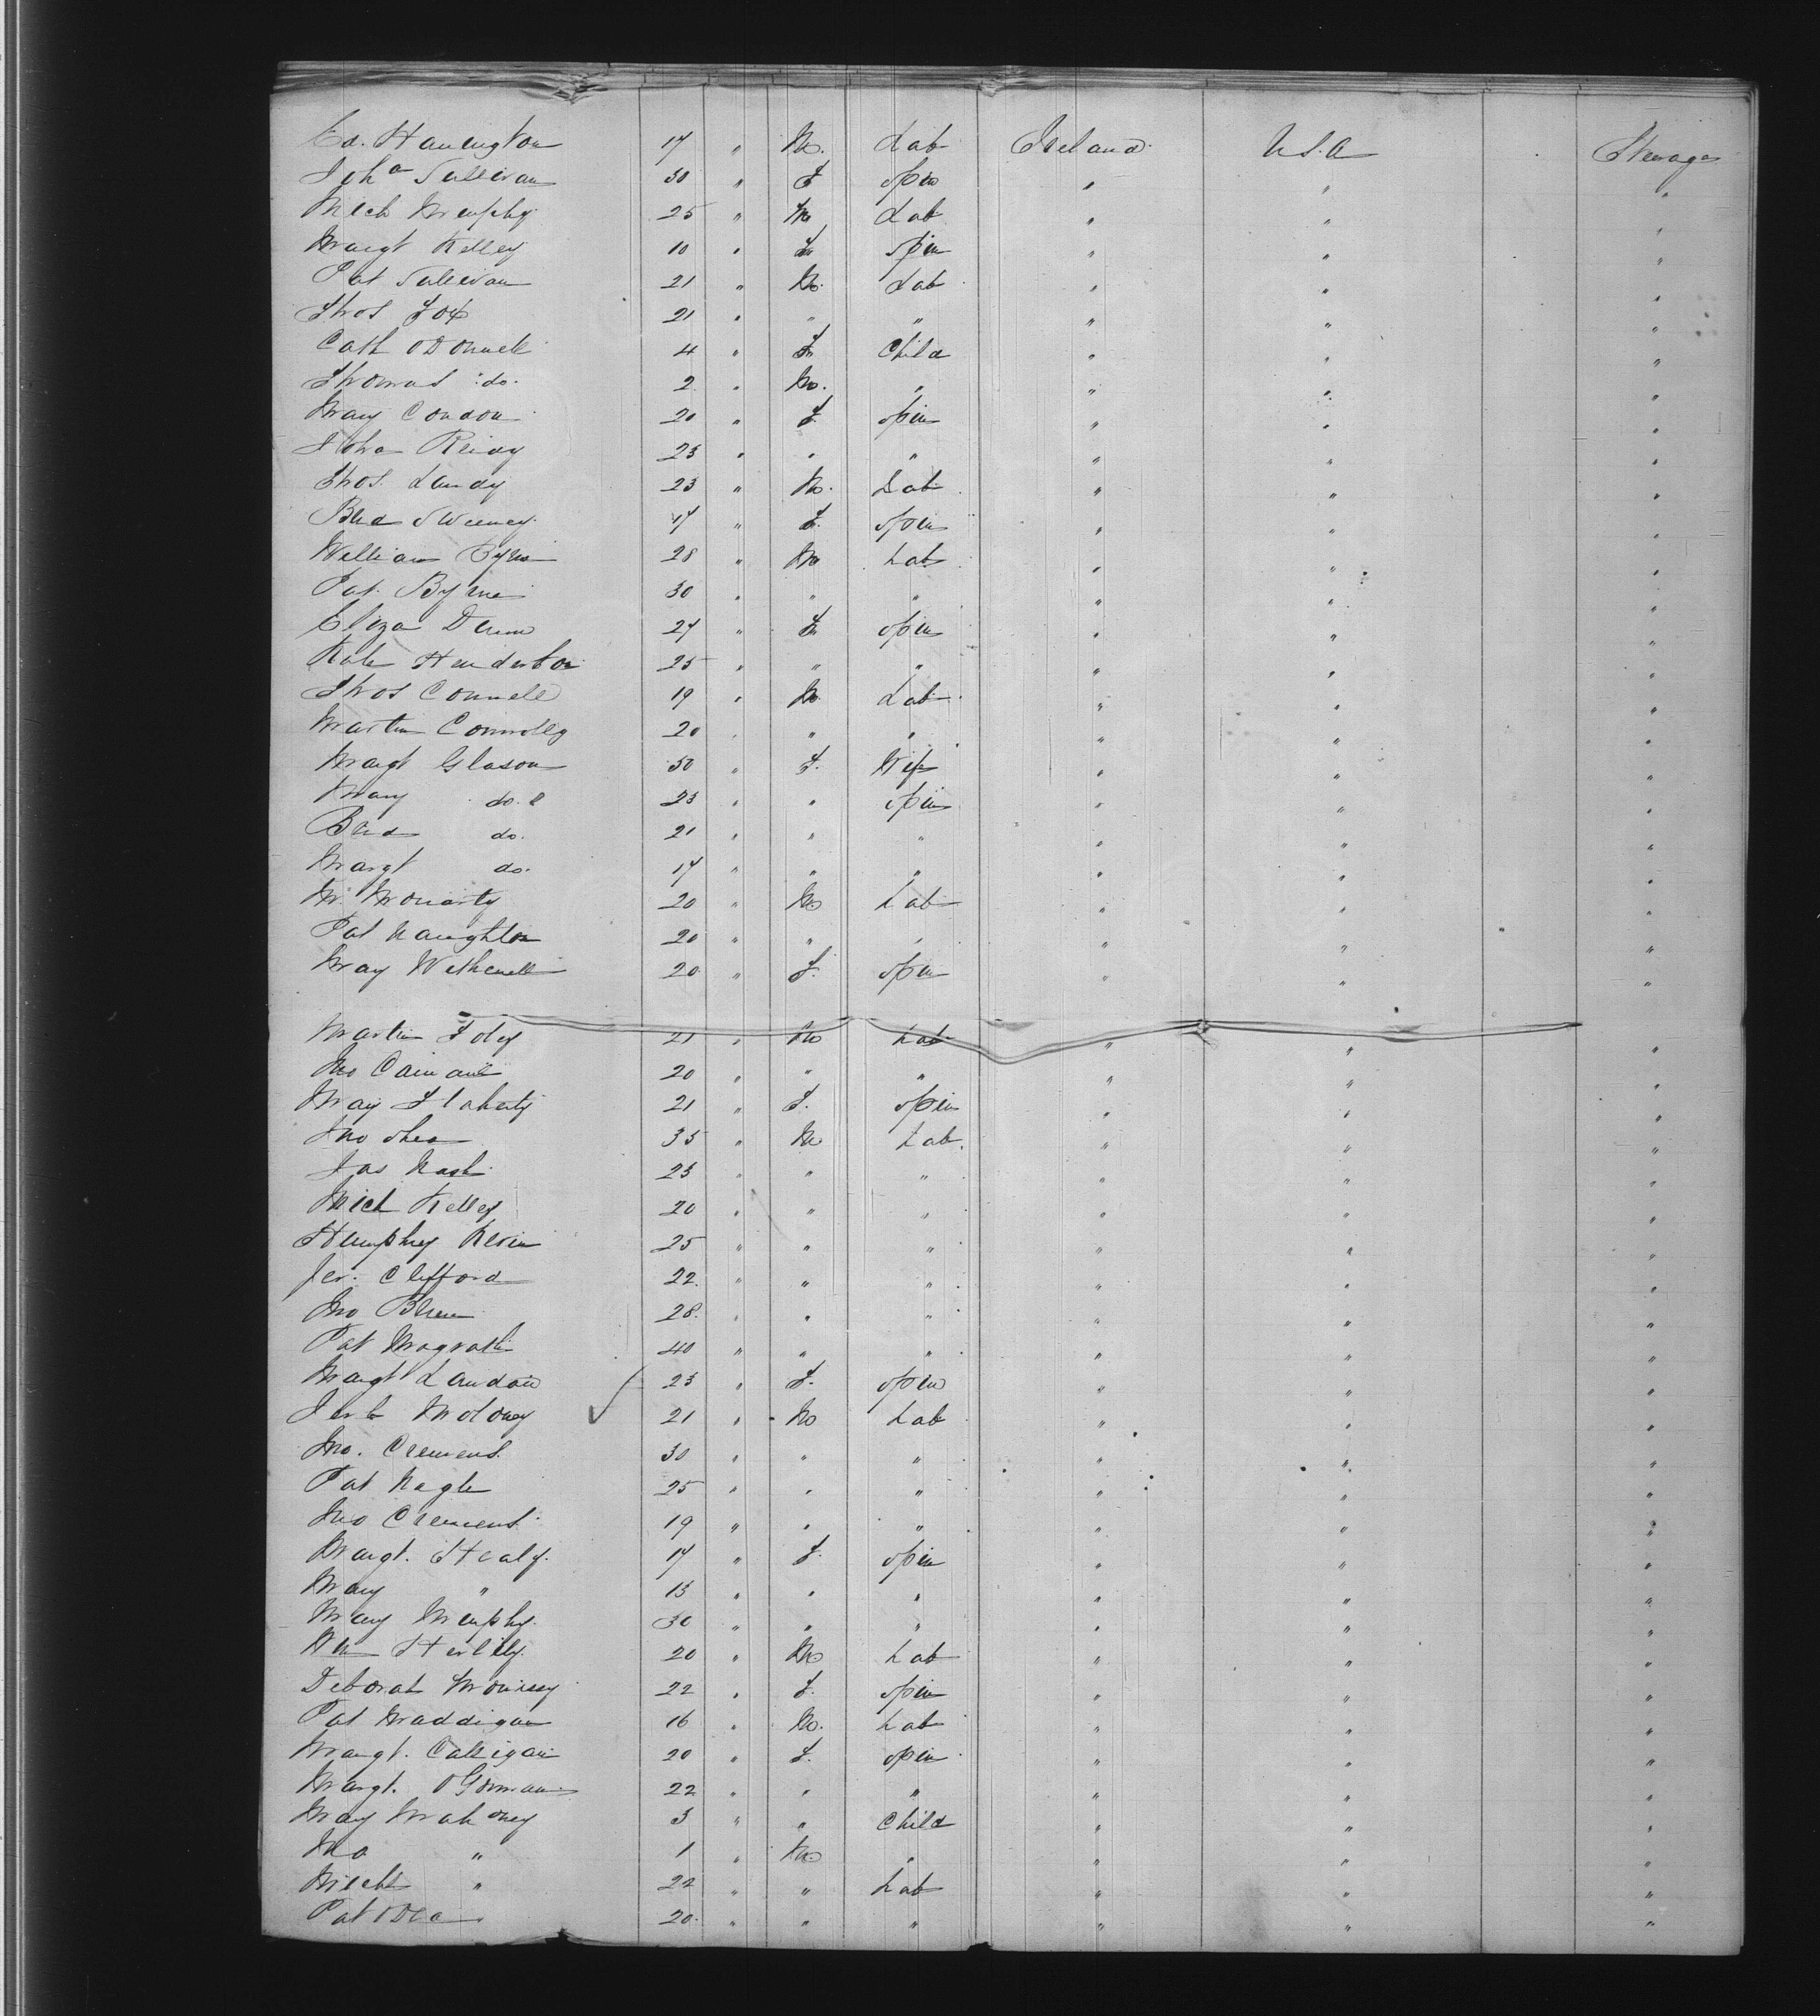 Ed. Harrington 17 " M. Lab Ireland. U.S.A Steerage
Joha Sullivan 30 " F Spin " " "
Mich Murphy 25 " M Lab " " "
Margt Kelley 10 " F Spin " " "
Pat Sullivan 21 " M. Lab " " "
Thos Fox 21 " " " " " "
Cath ODonnell 4 " F Child " " "
Thomas do. 2 " M. " " " "
Mary Condon 20 " F. Spin " " "
Joha Reidy 23 " " " " " "
Thos. Landy 23 " M. Lab " " "
Brid Sweeney 17 " F. Spin " " "
William Byrne 28 " M Lab " " "
Pat. Byrne 30 " " " " " "
Eliza Dunn 27 " F Spin " " "
Kate Henderson 25 " " " " " "
Thos Connell 19 " M Lab " " "
Martin Connolly 20 " " " " " "
Margt Glason 50 " F. Wife " " "
Mary do. 23 " " Spin " " "
Brid do. 21 " " " " " "
Margt do. 17 " " " " " "
M. Moriarty 20 " M Lab " " "
Pat Naughton 20 " " " " " "
Mary 20 " F. Spin " " "
Martin Foley 21 " M Lab " " "
Jno 20 " " " " " "
Mary Flaherty 21 " F. Spin " " "
Jno Shea 35 " M Lab. " " "
Jas Nash 23 " " " " " "
Mich Kelley 20 " " " " " "
Humphrey 25 " " " " " "
Jer. Clifford 22. " " " " " "
Jno 28. " " " " " "
Pat Magrath 40 " " " " " "
Margt 23 " F. Spin " " "
Moloney 21 " M Lab " " "
Jno. Clemens 30 " " " " " "
Pat Nagle 25 " " " " " "
Jno Clemens 19 " " " " " "
Margt. Healy. 17 " F. Spin " " "
Mary " 13 " " " " " "
Mary Murphy. 30 " " " " " "
Wm Herlihy. 20 " M Lab " " "
Deborah Morrissy 22 " F. Spin " " "
Pat Maddigan 16 " M. Lab " " "
Margt. Calligan 20 " F. Spin " " "
Margt. OGorman 22 " " " " " "
Mary Mahoney 3 " " Child " " "
Jno " 1 " M " " " "
Michl " 22 " " Lab " " "
Pat ODea 20. " " " " " "